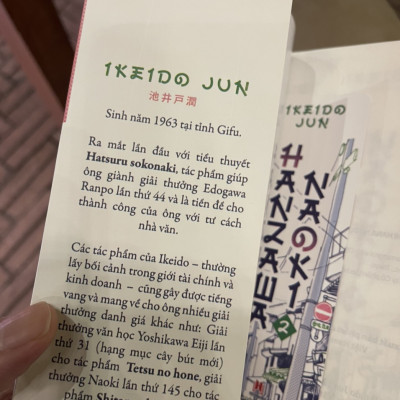 IKEIDO JUN
池井戸潤
Sinh năm 1963 tại tỉnh Gifu.
Ra mắt lần đầu với tiểu thuyết
Hatsuru sokonaki, tác phẩm giúp
ông giành giải thưởng Edogawa
Ranpo lần thứ 44 và là tiền đề cho
thành công của ông với tư cách
nhà văn.
Các tác phẩm của Ikeido – thường
lấy bối cảnh trong giới tài chính và
kinh doanh – cũng gây được tiếng
vang và mang về cho ông nhiều giải
thưởng danh giá khác như: Giải
thưởng văn học Yoshikawa Eiji lần
thứ 31 (hạng mục cây bút mới)
cho tác phẩm Tetsu no hone, giải
thưởng Naoki lần thứ 145 cho tác
phẩm
IKEIDO
JUN
HANZAWA
NAOKI
2